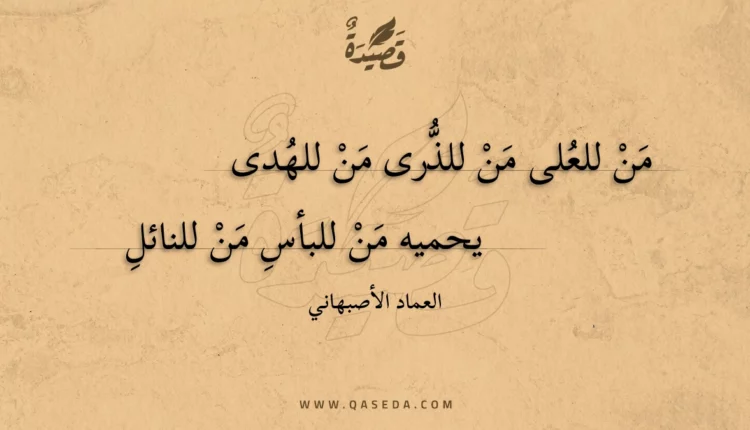 قَصِيْدَةٌ
مَنْ للعُلى مَنْ للذُّرى مَنْ للهُدى
يحميه مَنْ للبأسِ مَنْ للنائلِ
العماد الأصبهاني
WWW.QASEDA.COM